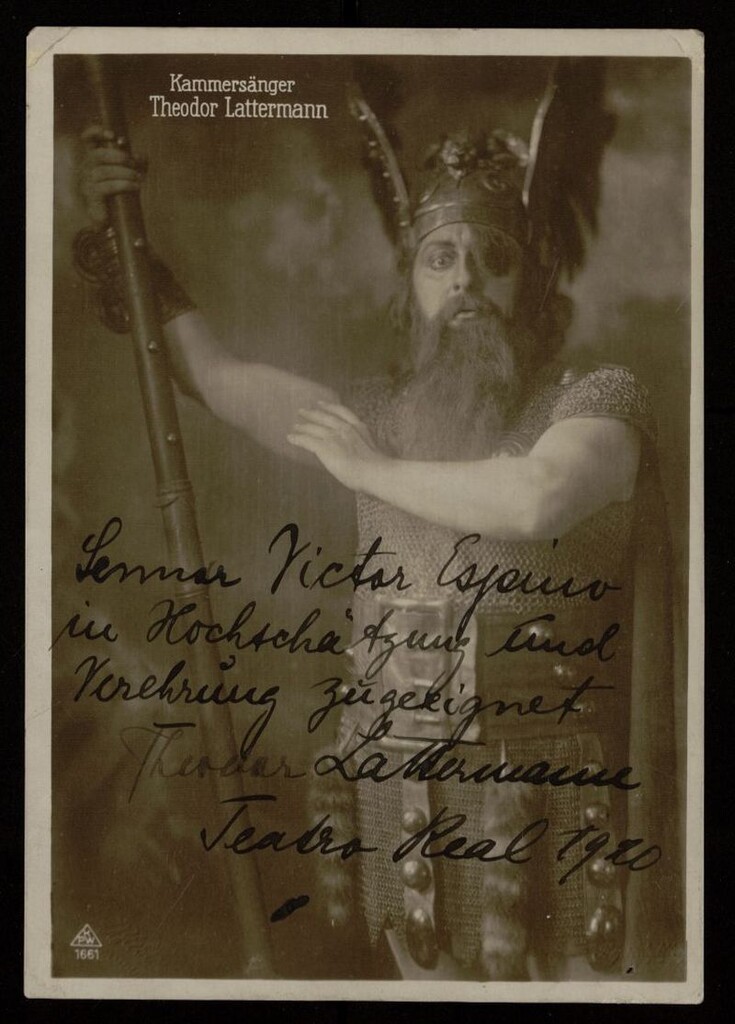 Kammersänger
Theodor Lattermann
Sennor Victor Espino
in Hochschätzung und
Verehrung zugeeignet
Theodor Lattermann
Teatro Real 1920
K
PW
1661